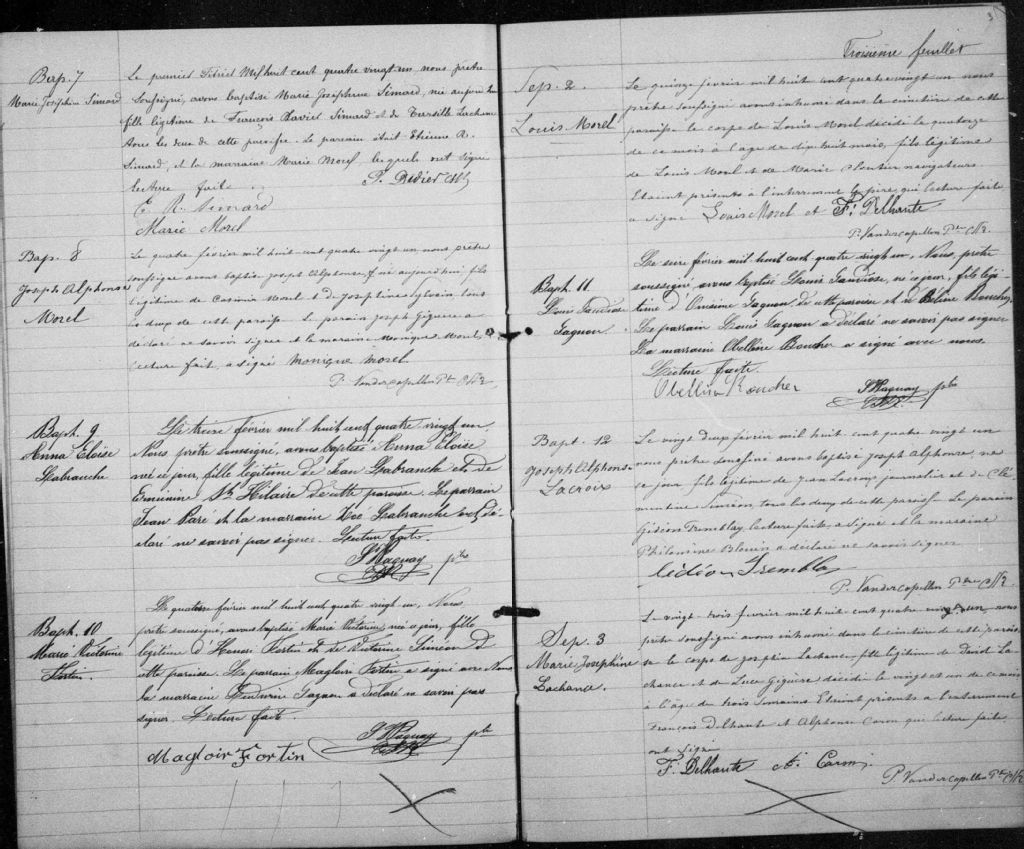 Bap. 7
Marie Joséphine Simard
Le premier Février Mil huit cent quatre vingt un nous prêtre
soussigné, avons baptisé Marie Joséphine Simard, née aujourd'hui
fille légitime de François Xavier Simard et de Tarsille Lachance
tous les deux de cette paroisse. Le parrain était Etienne R.
Simard, et la marraine Marie Morel, lesquels ont signé
lecture faite.
P. Didier
E R. Simard
Marie Morel
Bap. 8
Joseph Alphonse
Morel
Le quatre février mil huit cent quatre vingt un nous prêtre
soussigné avons baptisé Joseph Alphonse, né aujourd'hui fils
légitime de Casimir Morel et de Joséphine Sylvain tous
les deux de cette paroisse. Le parrain Joseph Giguère a
déclaré ne savoir signer et la marraine Monique Morel,
lecture fait, a signé Monique Morel
P. Vandercapellen Ptre
Bapt. 9
Anna Eloise
Labranche
Le treize février mil huit cent quatre vingt un,
Nous prêtre soussigné, avons baptisé Anna Eloise
née ce jour, fille légitime de Jean Labranche et de
Erminine St Hilaire de cette paroisse. Le parrain
Jean Paré et la marraine Zoé Labranche ont dé-
claré ne savoir pas signer. Lecture faite.
ptre
Baph. 10
Marie Victorine
Fortin.
Le quatorze février mil huit cent quatre vingt un, Nous
prêtre soussigné, avons baptisé Marie Victorine, née ce jour, fille
légitime d'Honoré Fortin et de Victorine Siméon de
cette paroisse. Le parrain Magloire Fortin a signé avec Nous
la marraine Gagnon a déclaré ne savoir pas
signer. Lecture faite.
ptre
Magloir Fortin
3
Troisième feuillet
Sep. 2.
Louis Morel
Le quinze février mil huit cent quatre vingt un nous
prêtre soussigné avons inhumé dans le cimetière de cette
paroisse le corps de Louis Morel décédé le quatorze
de ce mois à l'age de dix huit mois, fils légitime
de Louis Morel et de Marie Cloutier navigateurs.
Etaient présents à l'interrement le père qui lecture faite
a signé Louis Morel et F. Delhaute
P. Vandercapellen Ptre
Baph. 11
Louis
Gagnon
Le seize février mil huit cent quatre vingt un. Nous, prêtre
soussigné, avons baptisé Louis, né ce jour, fils légi-
time d'Onésime Gagnon de cette paroisse et d'Obéline Boucher,
Le parrain Louis Gagnon a déclaré ne savoir pas signer
La marraine Obelline Boucher a signé avec nous.
Lecture faite.
Obellina Boucher
ptre
Bapt. 12
Joseph Alphonse
Lacroix
Le vingt deux février mil huit cent quatre vingt un
nous prêtre soussigné avons baptisé Joseph Alphonse, né
ce jour fils légitime de Jean Lacroix journalier et de Clé-
mentine Siméon, tous les deux de cette paroisse. Le parrain
Gédéon Tremblay, lecture faite, a signé et la marraine
Philomène Blouin a déclaré ne savoir signer
Gédéon Tremblay
P. Vandercapellen Ptre
Sep. 3
Marie Joséphine
Lachance.
Le vingt-trois février mil huit cent quatre vingt un, nous
prêtre soussigné avons inhumé dans le cimetière de cette parois-
se le corps de Joséphine Lachance, fille légitime de David La-
chance et de Luce Giguère décédée le vingt et un de ce mois
à l'age de trois semaines. Etaient présents à l'enterrement
François Delhaute et Alphonse Caron qui lecture faite
ont signé
F. Delhaute A. Caron
P. Vandercapellen Ptre